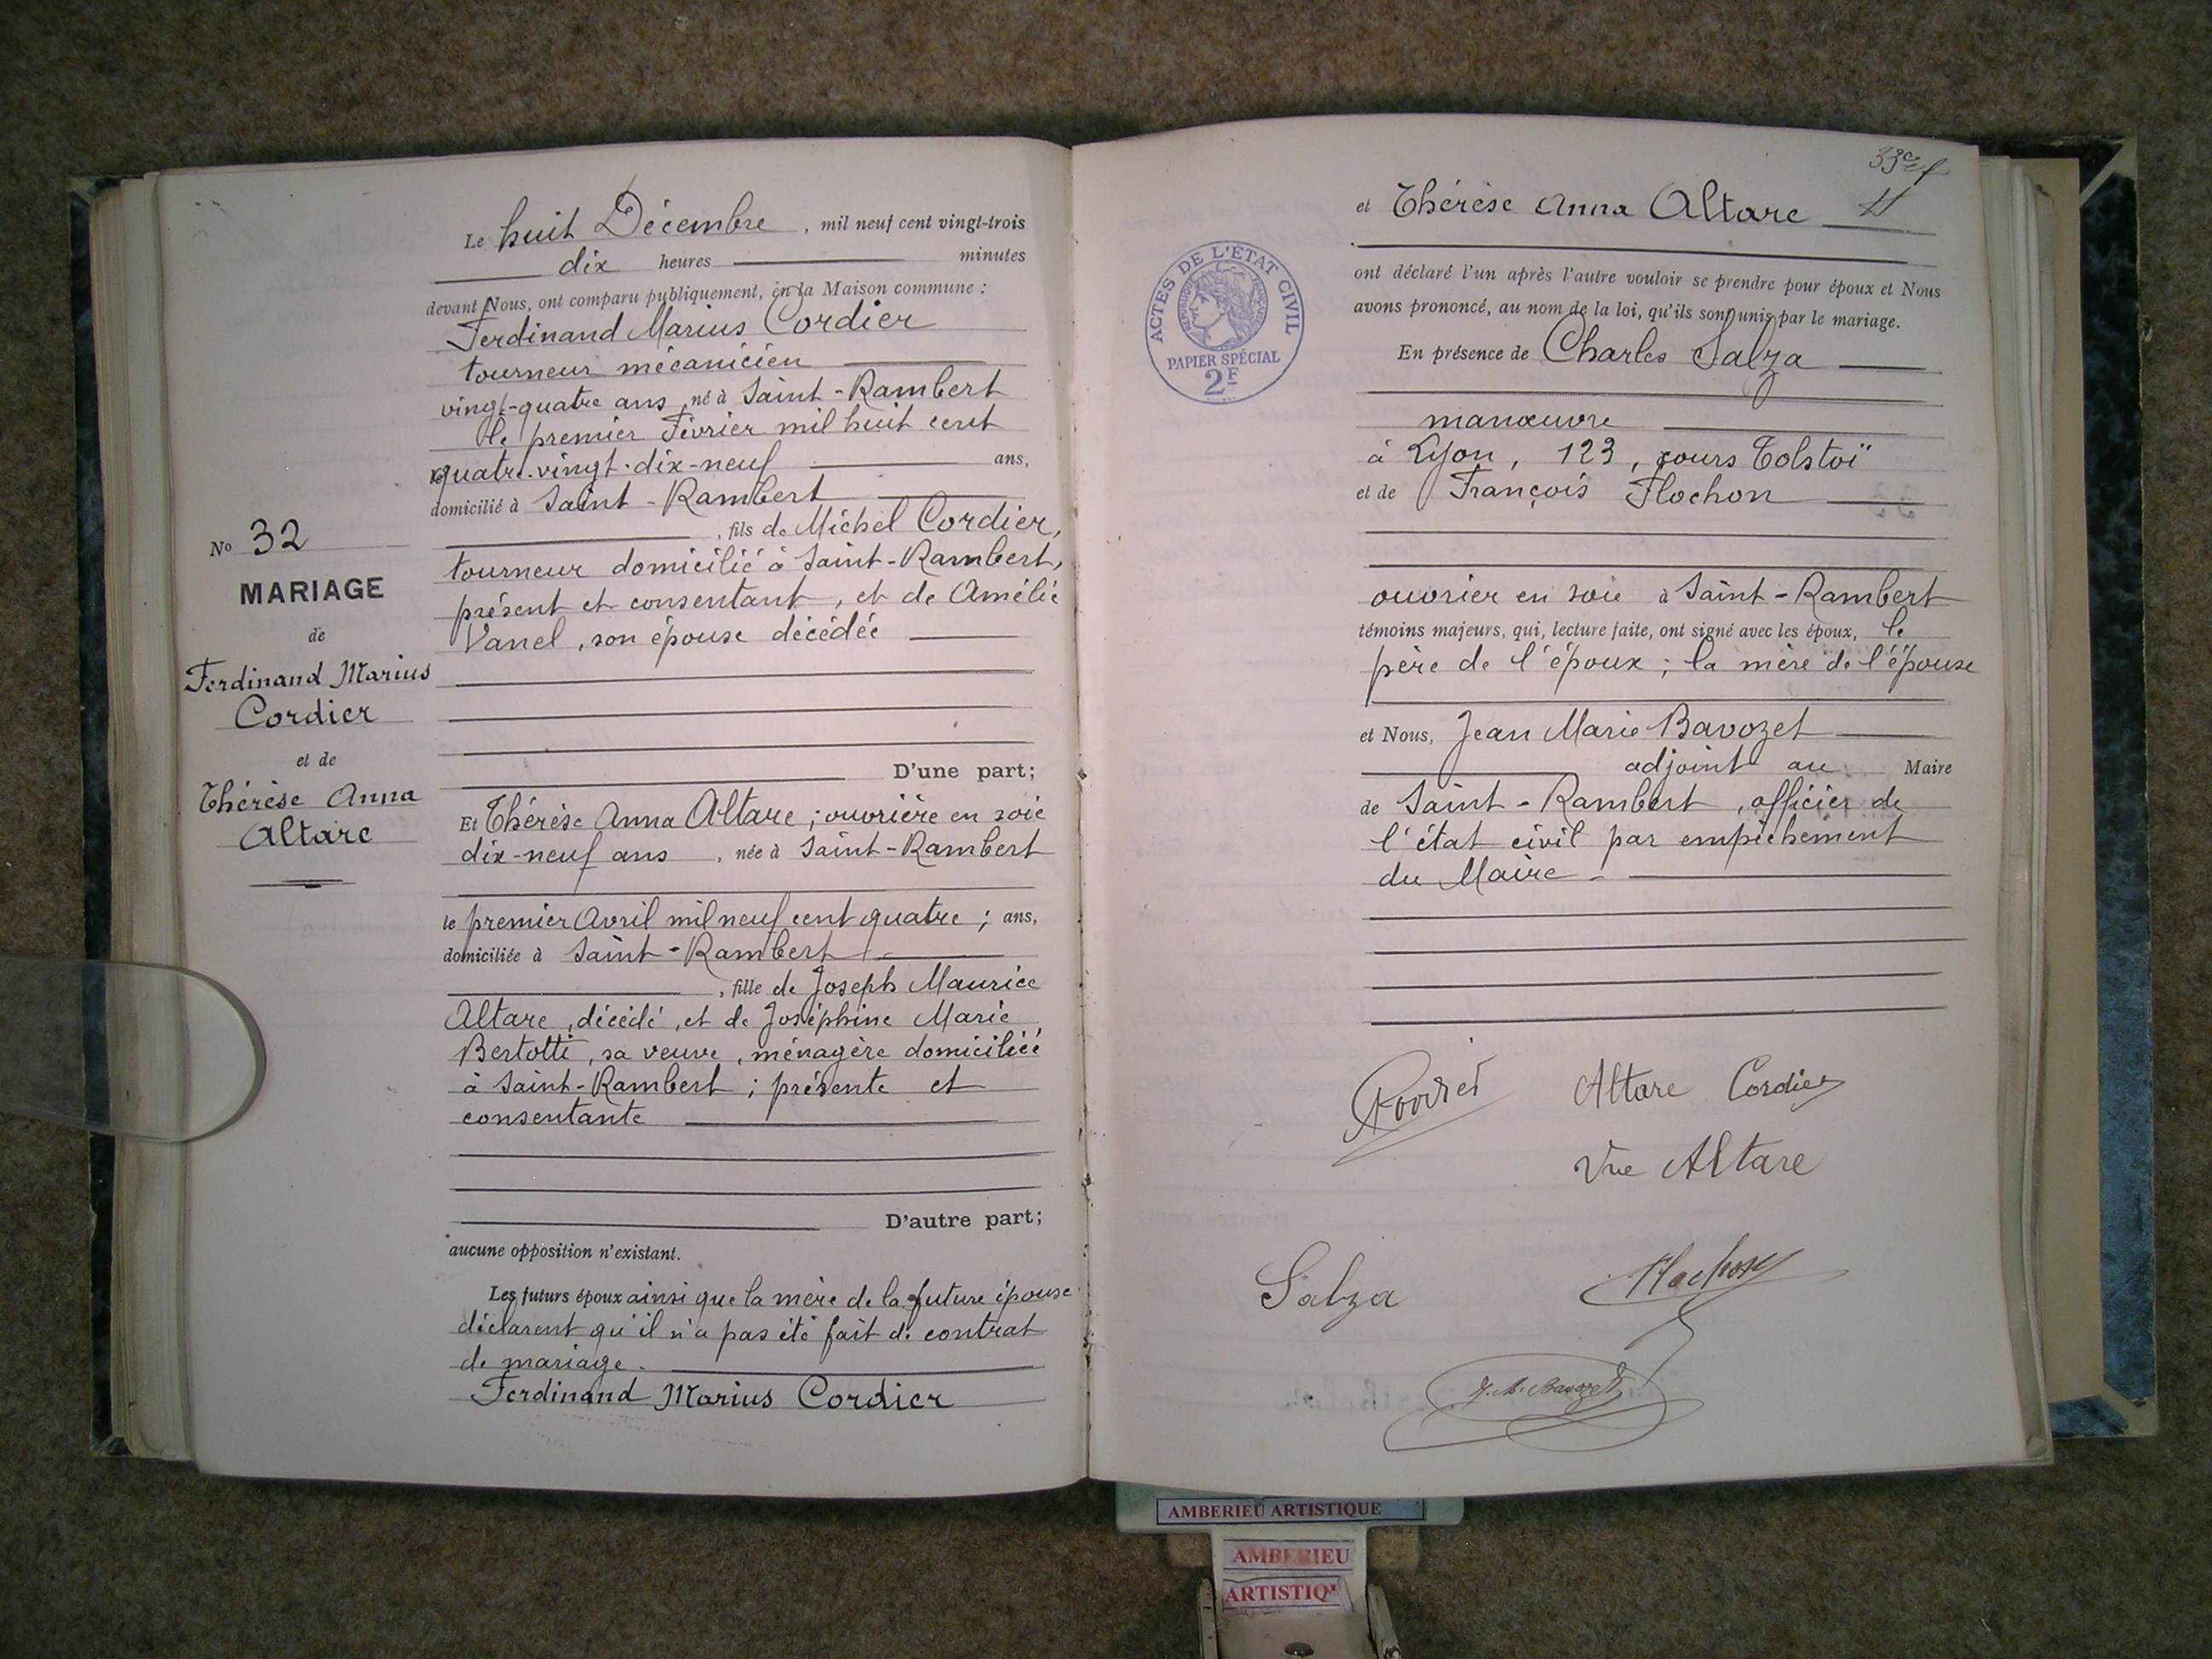 Le huit Décembre, mil neuf cent vingt-trois
dix heures minutes
devant Nous, ont comparu publiquement, en la Maison commune :
Ferdinand Marius Cordier
tourneur mécanicien
vingt-quatre ans, né à Saint-Rambert
le premier Février mil huit cent
quatre-vingt-dix-neuf ans,
domicilié à Saint-Rambert
, fils de Michel Cordier,
tourneur domicilié à Saint-Rambert,
présent et consentant, et de Amélie
Vanel, son épouse décédée
D'une part;
Et Thérèse Anna Altare ; ouvrière en soie
dix-neuf ans, née à Saint-Rambert
le premier Avril mil neuf cent quatre ; ans,
domiciliée à Saint-Rambert
, fille de Joseph Maurice
Altare, décédé, et de Joséphine Marie
Bertotti, sa veuve, ménagère domiciliée
à Saint-Rambert ; présente et
consentante
D'autre part;
aucune opposition n'existant.
Les futurs époux ainsi que la mère de la future épouse
déclarent qu'il n'a pas été fait de contrat
de mariage.
Ferdinand Marius Cordier
No 32
MARIAGE
de
Ferdinand Marius
Cordier
et de
Thérèse Anna
Altare
et Thérèse Anna Altare
ont déclaré l'un après l'autre vouloir se prendre pour époux et Nous
avons prononcé, au nom de la loi, qu'ils sont unis par le mariage.
En présence de Charles Salza
manœuvre
à Lyon, 123, cours Tolstoï
et de François Flochon
ouvrier en soie à Saint-Rambert
témoins majeurs, qui, lecture faite, ont signé avec les époux, le
père de l'époux ; la mère de l'épouse
et Nous, Jean Marie Bavozet
adjoint au Maire
de Saint-Rambert, officier de
l'état civil par empêchement
du Maire.
Altare Cordier
Vve Altare
Salza Flochon
J. M. Bavozet
ACTES DE L'ÉTAT CIVIL
PAPIER SPÉCIAL
2F
AMBERIEU ARTISTIQUE
AMBERIEU
ARTISTIQ